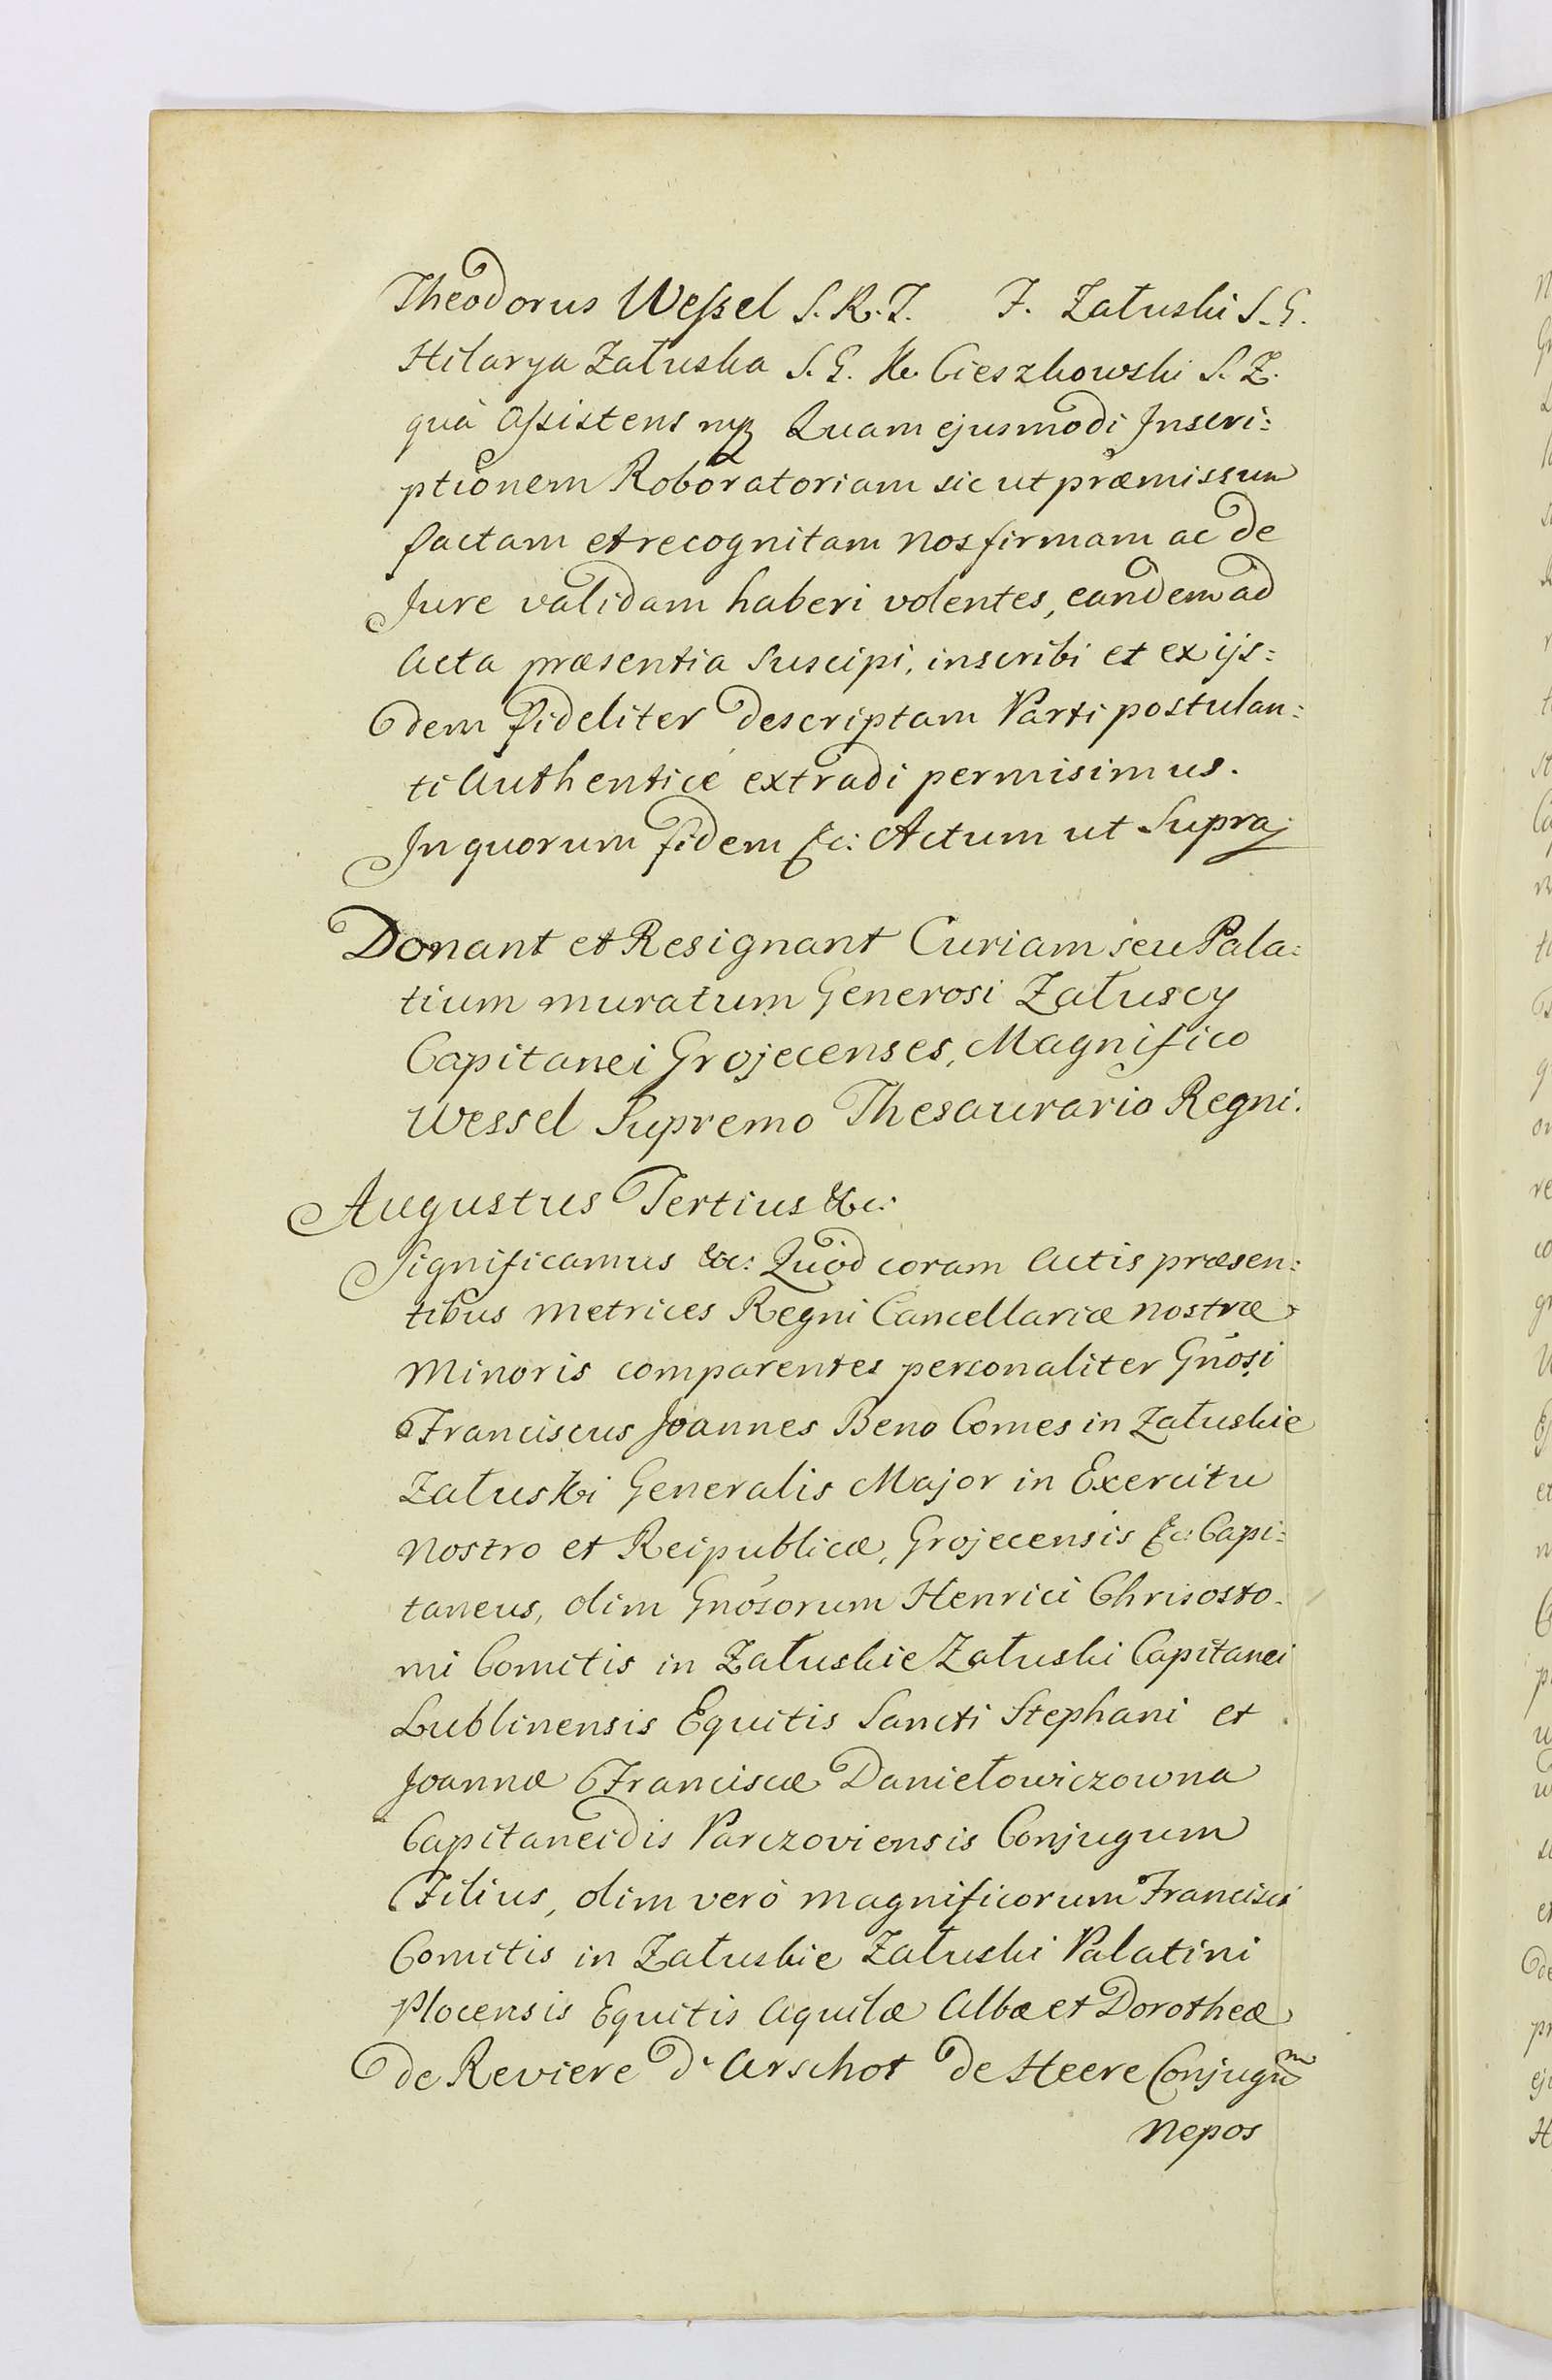 Theodorus Weſsel S.R.T. F. Załuski S.G.
Hilarya Załuska S.G. K. Cieszkowski S.Z.
quà Aſsistens mp Quam ejusmodi Inscri:
ptionem Roboratoriam sic ut præmissum
factam et recognitam nos firmam ac de
Jure validam haberi volentes, eandem ad
Acta præsentia Suscipi, inscribi et ex ijs:
dem fideliter descriptam Parti postulan:
ti Authenticè extradi permisimus.
In quorum fidem &c: Actum ut Supra;
Donant et Resignant Curiam seu Pala:
tium muratum Generosi Załuscy
Capitanei Grojecenses, Magnifico
Wessel Supremo Thesaurario Regni.
Augustus Tertius &c:
Significamus &c: Quod coram Actis præsen:
tibus Metrices Regni Cancellariæ nostræ
Minoris comparentes personaliter Gnosi
Franciscus Joannes Beno Comes in Załuskie
Załuski Generalis Major in Exercitu
Nostro et Reipublicæ, Grojecensis &c: Capi:
taneus, olim Gnosorum Henrici Chrisosto-
mi Comitis in Załuskie Załuski Capitanei
Lublinensis Equitis Sancti Stephani et
Joannæ Franciscæ Daniełowiczowna
Capitaneidis Parczoviensis Conjugum
Filius, olim verò Magnificorum Francisci
Comitis in Załuskie Załuski Palatini
Plocensis Equitis Aquilæ Albæ et Dorotheæ
de Reviere d'Arschot de Heere Conjugum
Nepos